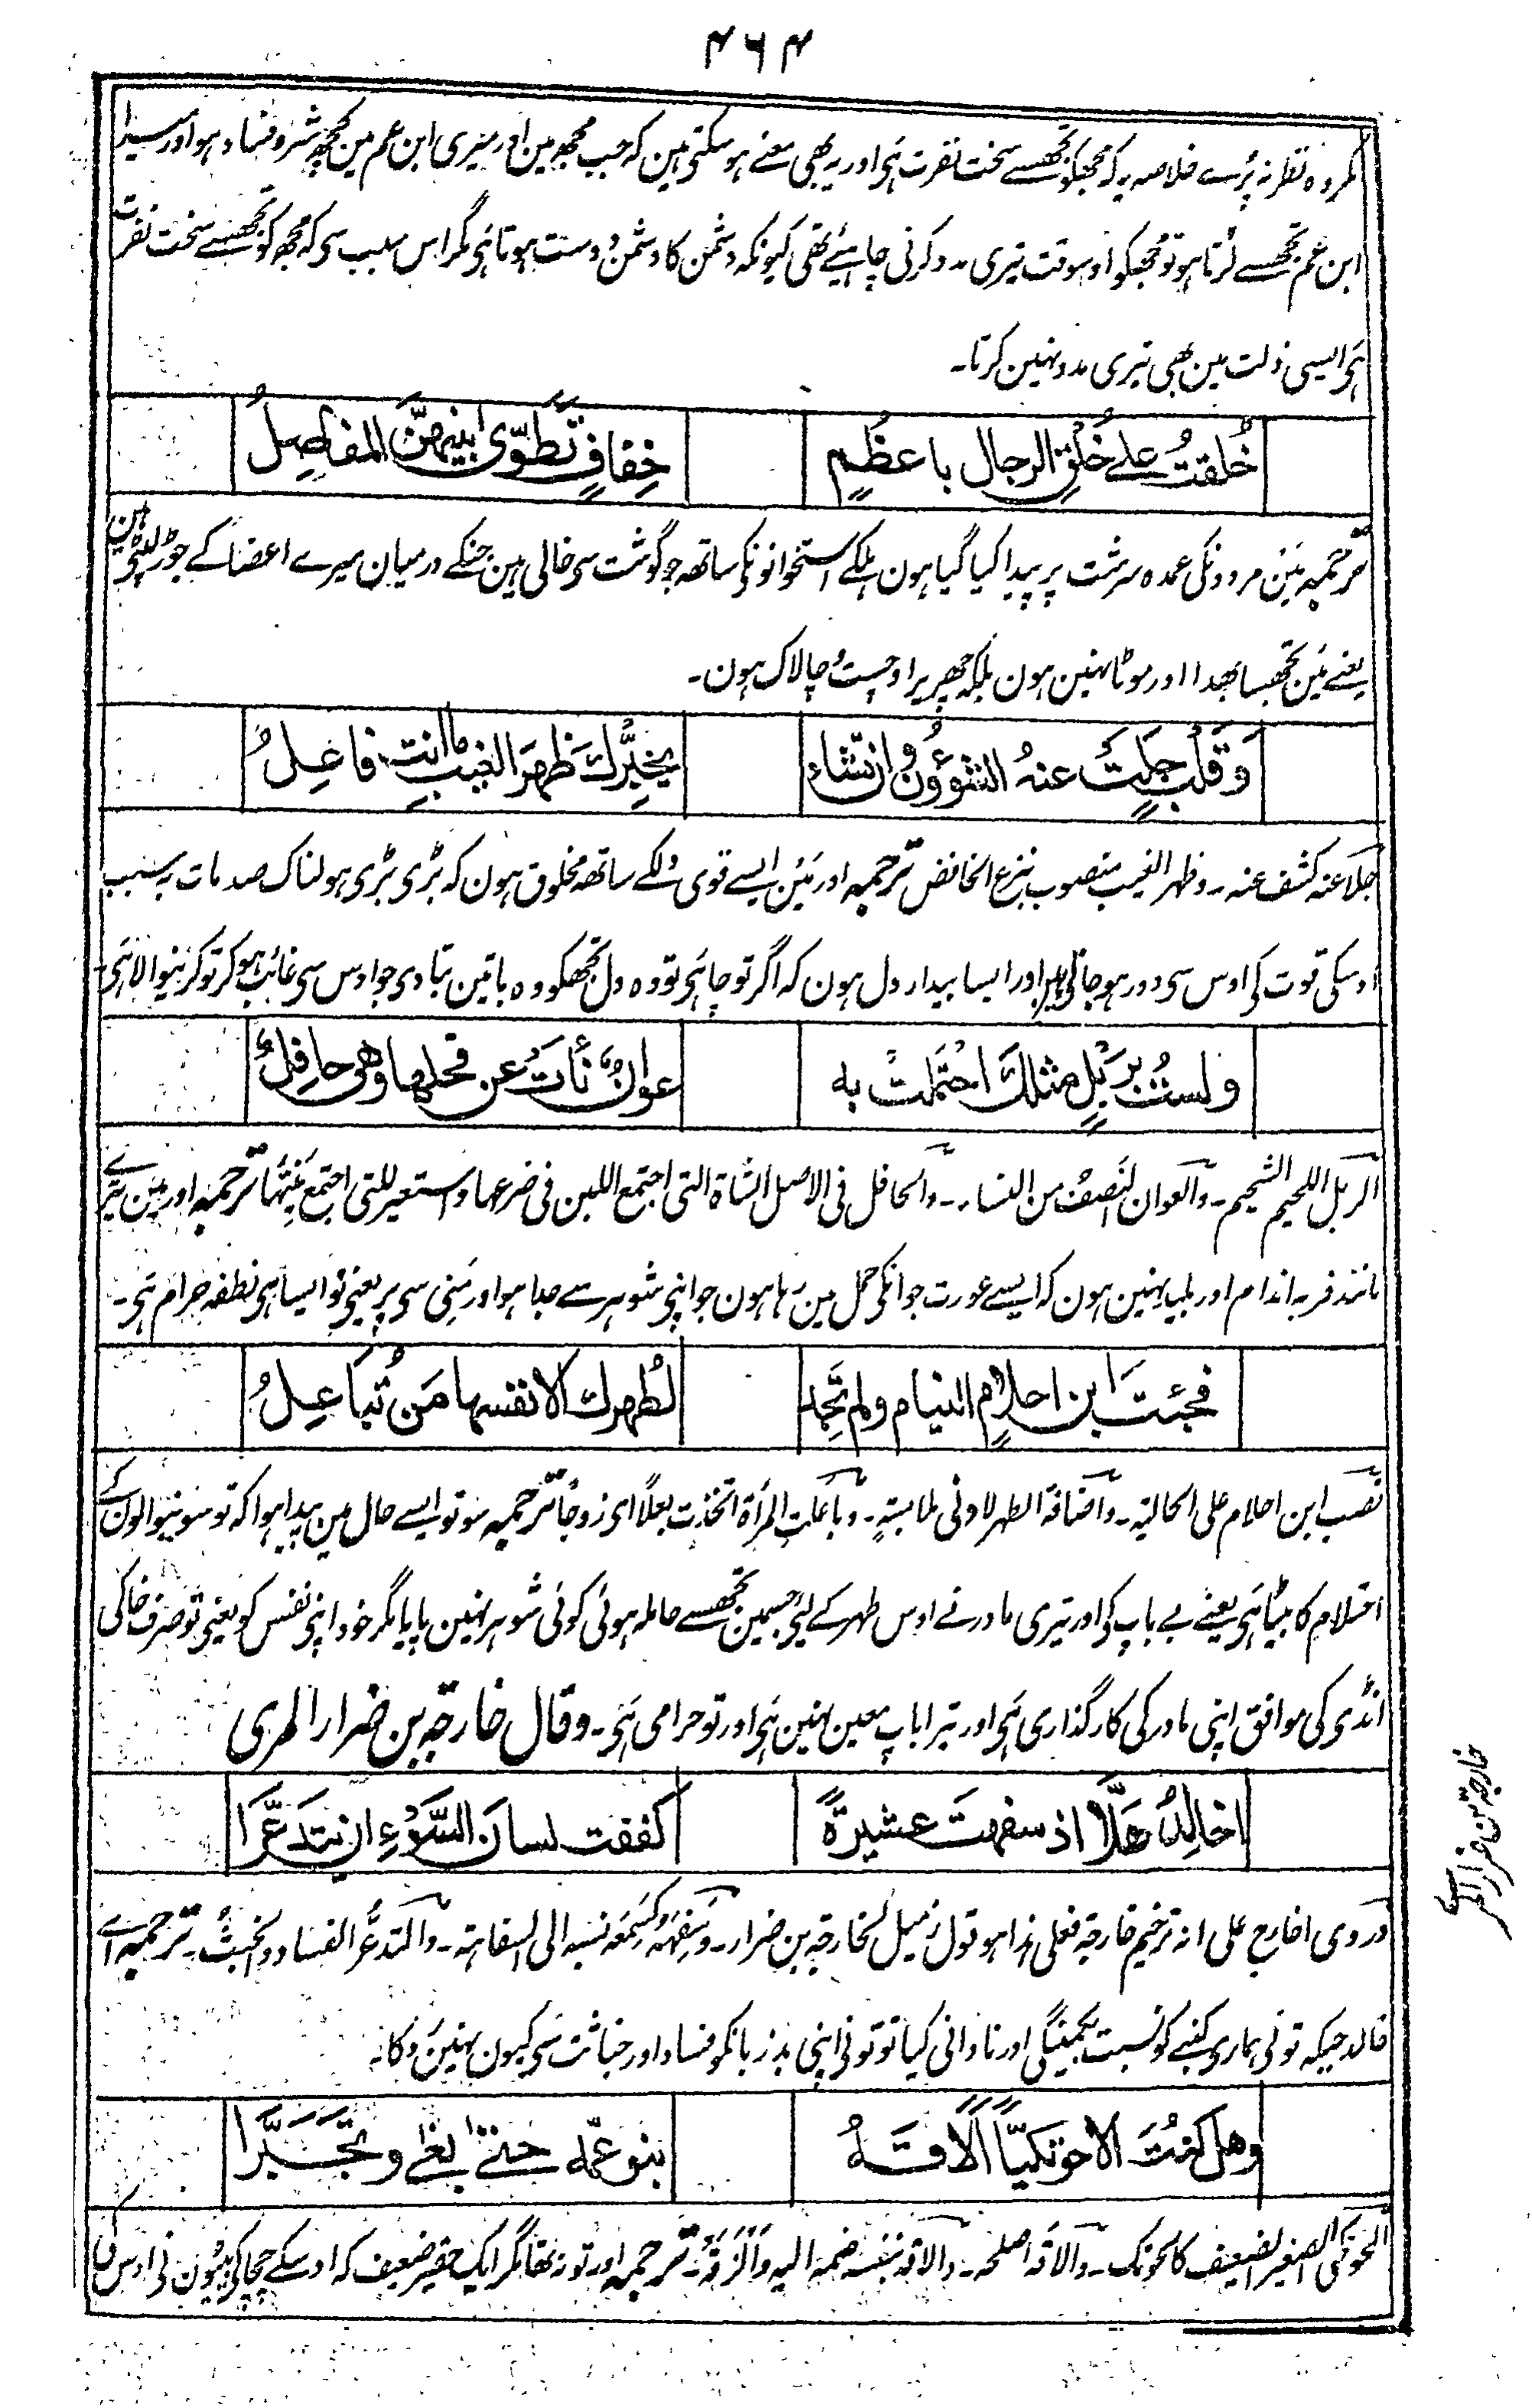 ۴۶۴
مکروہ نظر نہ پڑے خلاصہ یہ کہ مجھکو تجھسے سخت نفرت ہی اور یہ بھی معنے ہو سکتی ہین کہ جب مجھ مین اور میری ابن عم مین کچھ شر و فساد ہو اور میرا
ابن عم تجھسے لڑتا ہو تو مجھکو اوسوقت تیری مدد کرنی چاہیئے تھی کیونکہ دشمن کا دشمن دوست ہوتا ہی مگر اس سبب سی کہ مجھ کو تجھسے سخت نفرت
ہی ایسی ذلت مین بھی تیری مدد نہین کرتا۔
خُلقتُ علے خُلْقِ الرجال باعظُمٍ خِفافٍ تَطوّی بینهنّ المفاصِلُ
ترجمہ مَین مردونکی عمدہ سرشت پر پیدا کیا گیا ہون ہلکے استخوانونکی ساتھ جو گوشت سی خالی ہین جنکے درمیان میرے اعضا کے جوڑ لپٹی ہین
یعنے مَین تجھسا بھدا اور موٹا نہین ہون بلکہ چھریرا و چست و چالاک ہون۔
وَقلبٍ جلَتْ عنهُ الشؤونُ وان تشاء یخبِّرك ظهرَ الغیب ما انت فاعِلُ
جَلَا عنہ کشف عنہ۔ وظہر الغیب منصوب بنزع الخافض ترجمہ اور مَین ایسے قوی دلکے ساتھ مخلوق ہون کہ بڑی بڑی ہولناک صدمات بہ سبب
اوسکی قوت کی اوس سی دور ہو جاتی ہین اور ایسا بیدار دل ہون کہ اگر تو چاہی تو وہ دل تجھکو وہ باتین بتادی جو اوس سی غائب ہو کر تو کرنیوالا ہی
ولستُ بِرَبْلٍ مثلك احتملتْ به عوانٌ نأتْ عن فحلها وهی حافِلُ
الربل اللحیم الشحیم۔ والعوان النَصَف من النساء۔ والحافل فی الاصل الشاة التی اجتمع اللبن فی ضرعہا واستعیر للتی اجتمع مَنِیّہا ترجمہ اور مین تیرے
مانند فربہ اندام اور بلید نہین ہون کہ ایسے عورت جوانکی حمل مین رہا ہون جو اپنی شوہر سے جدا ہو اور منی سی پر یعنی تو ایسا ہی نطفہ حرام ہی۔
فجئتَ ابن احلام النیام ولم تَجِد لطُهرك الا نفسها مَن تُباعِلُ
نصب ابن احلام علی الحالیة۔ واضافة الطہر لادنی ملابسةٍ۔ وباعلت المرأة اتخذت بعلًا ای زوجًا ترجمہ سو تو ایسے حال مین پیدا ہوا کہ تو سونیوالون کے
احتلام کا بیٹا ہی یعنے بے باپ کی اور تیری مادر نے اوس طہر کے لیی جسمین تجھسے حاملہ ہوئی کوئی شوہر نہین پایا مگر خود اپنی نفس کو یعنی تو صرف خاکی
انڈی کی موافق اپنی مادر کی کارگذاری ہی اور تیرا باپ معین نہین ہی اور تو حرامی ہی۔ وقال خارجة بن ضرار المری
اخالدُ هلّا اذ سفهتَ عشیرةً كففت لسان السَّوْءِ ان یتدعّرا
وروی اخارج علی انہ ترخیم خارجة فعلی ہذا ہو قول زمیل لخارجة بن ضرار۔ وسَفِہَہ کسَمِعَہ نسبہ الی السفاہة۔ والتدعّر الفساد والخبث۔ ترجمہ اے
خالد جبکہ تونی ہماری کنبے کو نسبت کمینگی اور نادانی کیا تو تونی اپنی بد زبانکو فساد اور خباثت سی کیون نہین روکا۔
وهل كنتَ الا حوتكیًّا الاقَهُ بنو عمّه حتے بغے وتجبَّرا
الحوتکی الصغیر الضعیف کالحوتک۔ والاقہ اصلحہ۔ والاقہ بنفسہ ضمہ الیہ والزقہ۔ ترجمہ اور تو نہ تھا مگر ایک حقیر ضعیف کہ اوسکے چچا کی بیٹون نی اوس کی
خارجة بن ضرار المری